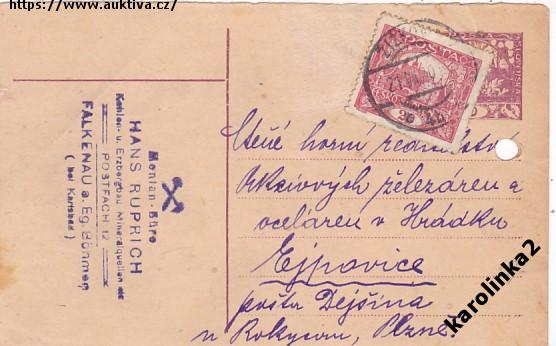 https://www.auktiva.cz/
Montan-Büro
HANS RUPRICH
Kohlen- u. Erzbergbau Mineralquellen etc
POSTFACH 12
FALKENAU a. Eg. Böhmen
( bei Karlsbad )
POŠTA
ČESKO
20
Ctěné horní ředitelství
Akciových železáren a
oceláren v Hrádku
Ejpovice
pošta Dejšina
u Rokycan, Plzně
karolinka2